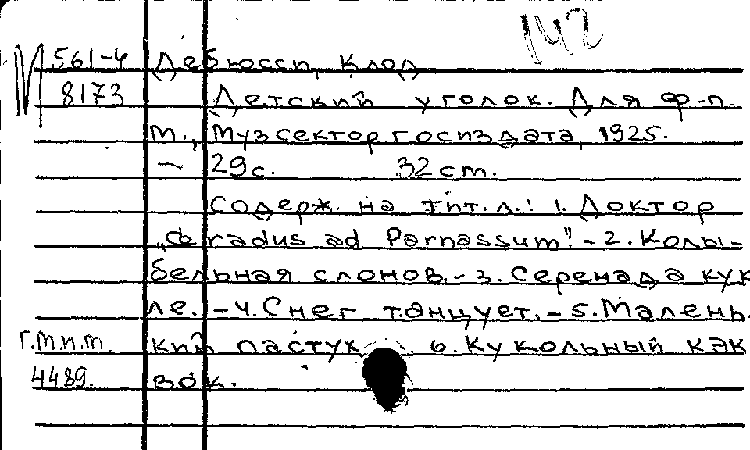 142
561-4 Дебюсси, Клод
8173 Детский уголок. Для ф-п.
М., Музсектор Госиздата, 1925.
— 29 с. 32 cm.
Содерж. на тит. л.: 1. Доктор
„Gradus ad Parnassum". – 2. Колы-
бельная слонов. – 3. Серенада кук
ле. – 4. Снег танцует. – 5. Малень-
г.м.и.т. кий пастух 6. Кукольный кэк
4489. вок.